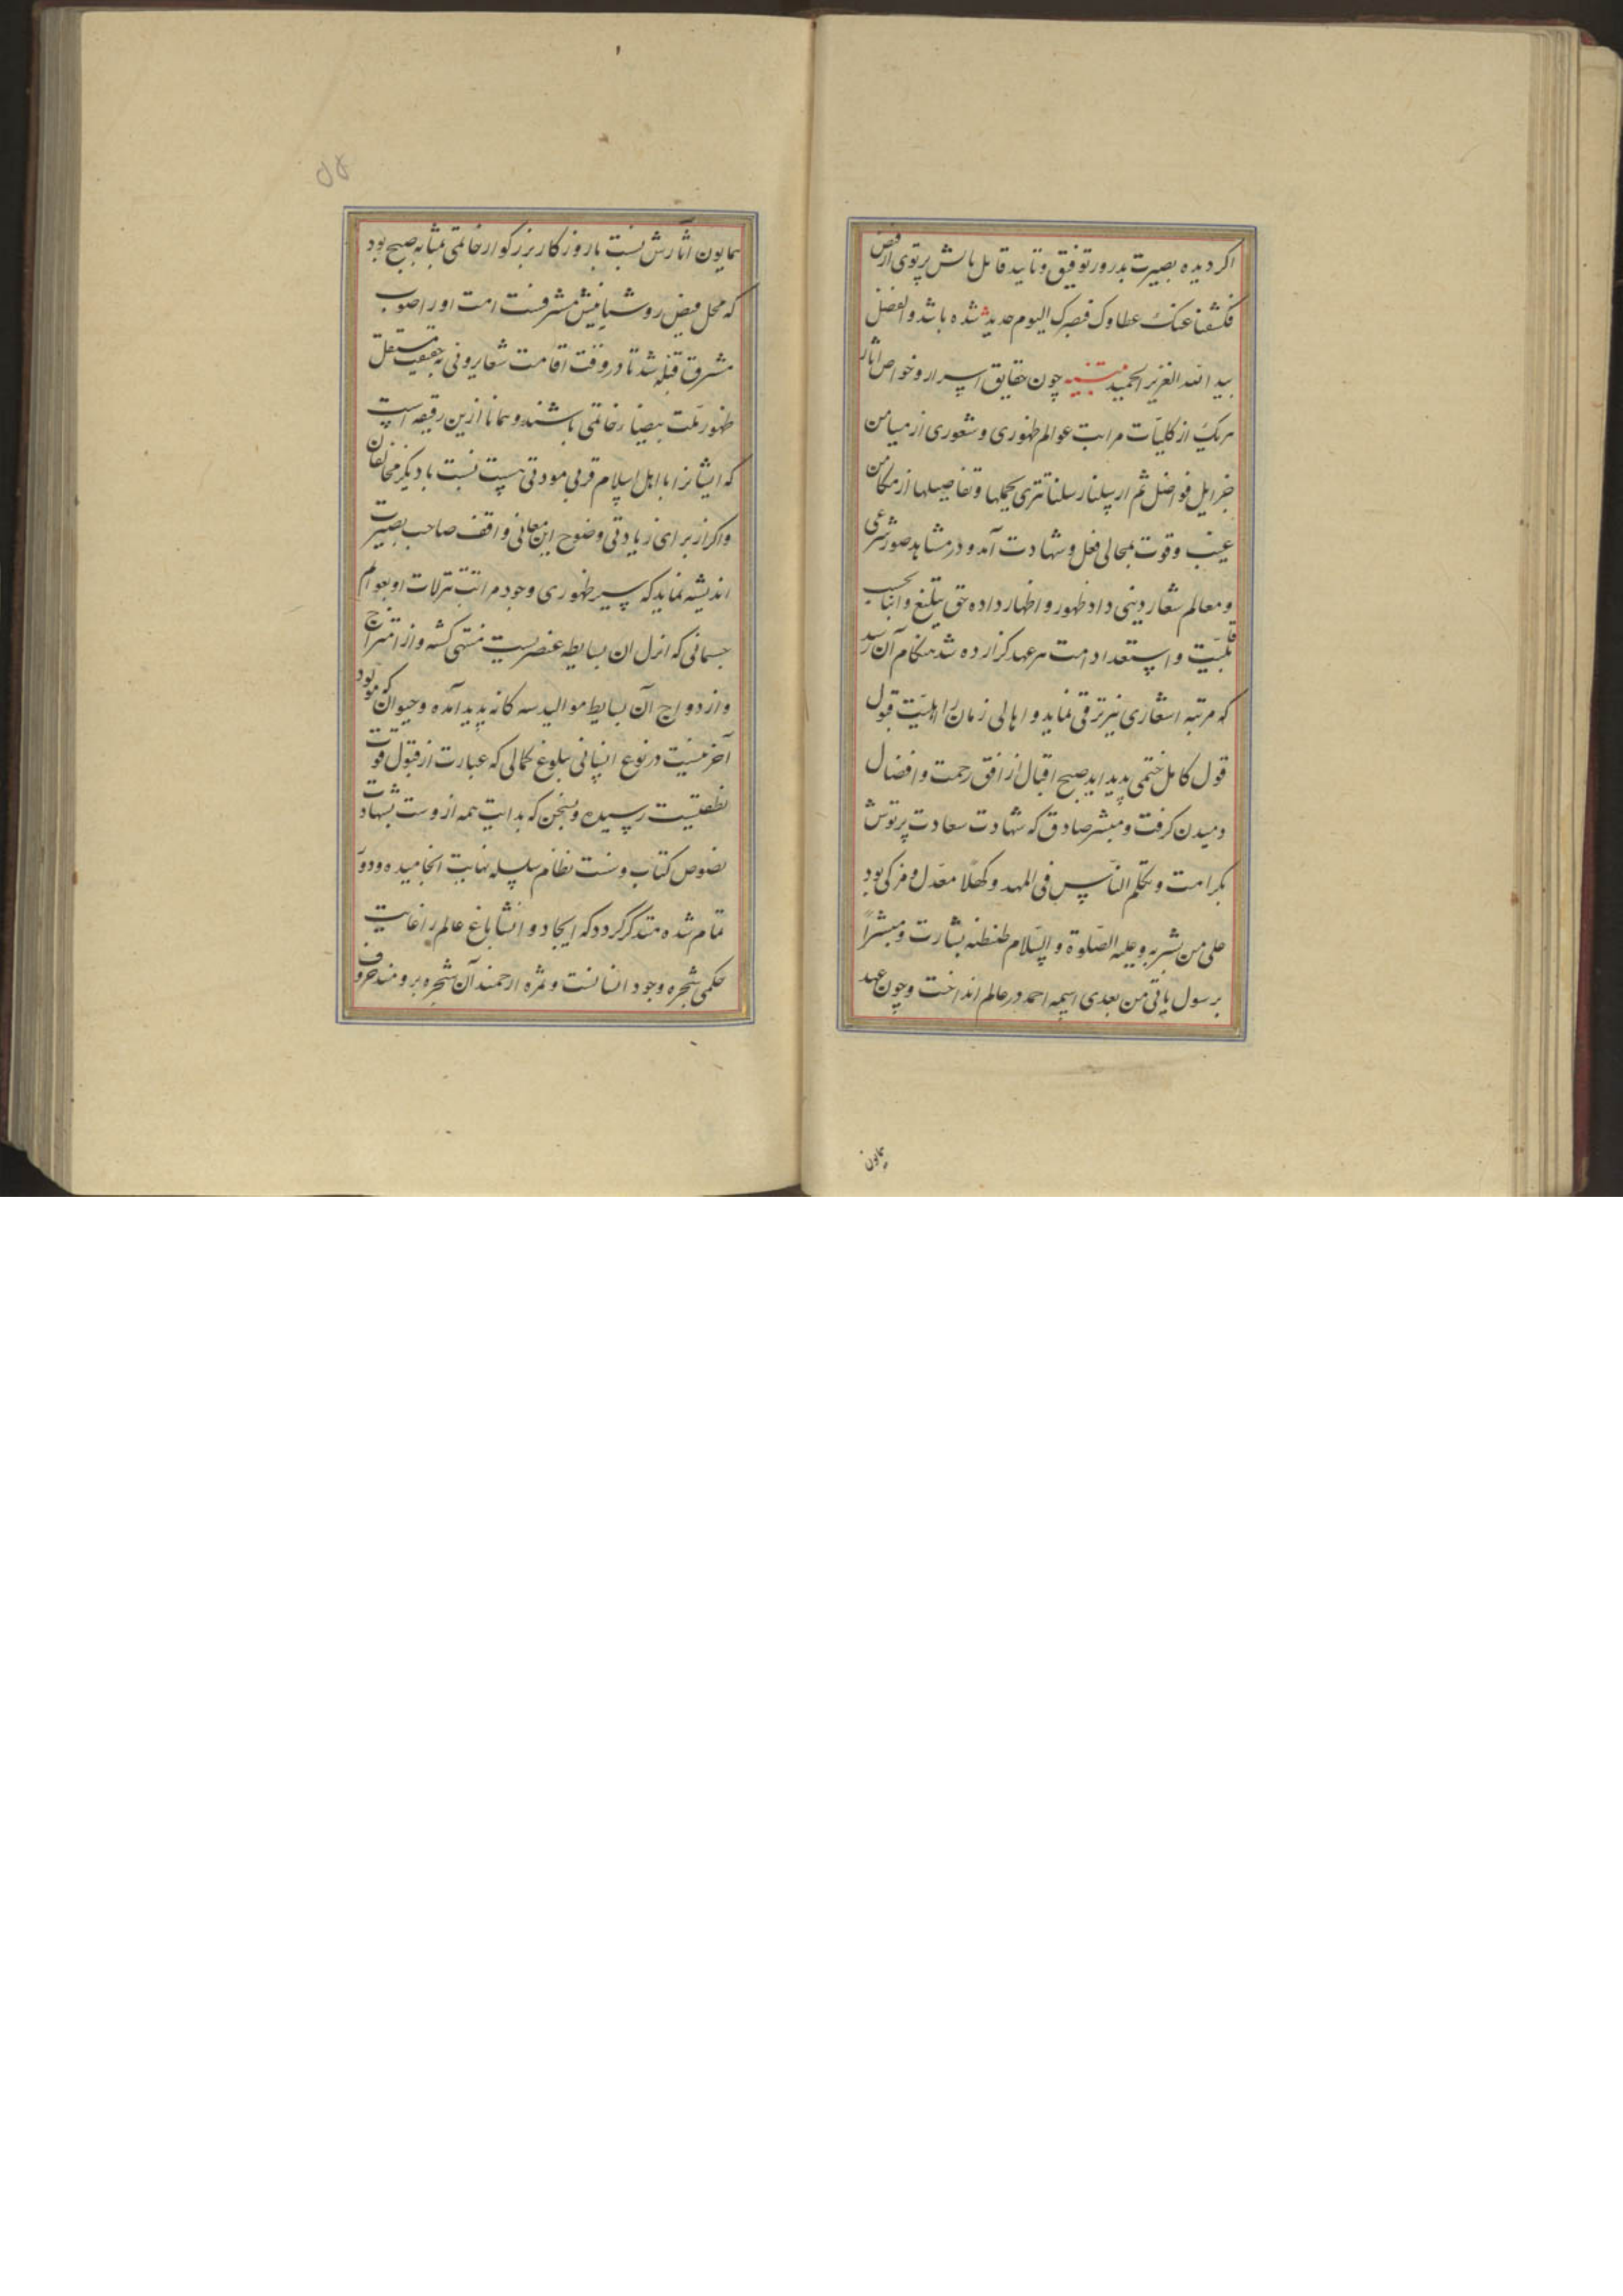 اکر دیده بصیرت بدرور توفیق و تایید قابل تابش پرتوی از فیض
فکشفنا عنک غطاوک فبصرک الیوم حدید شده باشد والفضل
بید الله العزیز الحمید تنبیه چون حقایق اسرار و خواص اثار
هریک از کلیات مراتب عوالم ظهوری و شعوری از میامن
جزایل فواضل ثم ارسلنا رسلنا تتری بجملها و تفاصیلها از مکامن
غیب و قوت بمجالی فعل و شهادت آمد و در مشاهد صور شرعی
و معالم شعار دینی داد ظهور و اظهار داده حق تبلیغ و انبا بحسب
قابلیت و استعداد امت هر عهد کزارده شد هنکام آن رسید
که مرتبه اشعاری نیز ترقی نماید و اهالی زمان را اهلیت قبول
قول کامل ختمی پدید اید صبح اقبال از افق رحمت و افضال
دمیدن کرفت و مبشر صادق که شهادت سعادت پرتوش
بکرامت و یکلم الناس فی المهد و کهلا معدل و مزکی بود
علی من بشر به و علیه الصلوة و السلام طنطنه بشارت و مبشرا
برسول یاتی من بعدی اسمه احمد در عالم انداخت و چون عهد
همایون
همایون اثارش نسبت با روزکار بزرکوار خاتمی بمثابه صبح بود
که محل فیض روشنیانیش مشرقست امت او را صوب
مشرق قبله شد تا در وقت اقامت شعایر ونی به حقیقت مستقبل
ظهور ملت بیضاء خاتمی باشند و همانا ازین رقیقه است
که ایشانرا با اهل اسلام قربی مودتی هست نسبت با دیکر مخالفان
و اکر از برای زیادتی وضوح این معانی واقف صاحب بصیرت
اندیشه نماید که سیر ظهوری وجود مراتب تنزلات او بعوالم
جسمانی که انزل ان بسایط عنصریست منتهی کشته و از امتزاج
و ازدواج آن بسایط موالید سه کانه پدید آمده و حیوان که مولود
آخرینست در نوع انسانی ببلوغ کمالی که عبارت از قبول قوت
نطقیست رسیده و بسخن که بدایت همه ازوست بشهادت
نصوص کتاب و سنت نظام سلسله نهایت انجامیده و دور
تمام شده متذکر گردد که ایجاد و انشا باغ عالم را غایت
حکمی شجره وجود انسانست و ثمره ارجمند آن شجره برومند حروف